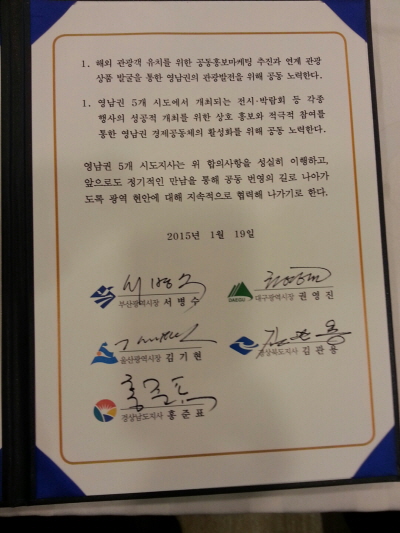 1. 해외 관광객 유치를 위한 공동홍보마케팅 추진과 연계 관광
상품 발굴을 통한 영남권의 관광발전을 위해 공동 노력한다.
1. 영남권 5개 시도에서 개최되는 전시·박람회 등 각종
행사의 성공적 개최를 위한 상호 홍보와 적극적 참여를
통한 영남권 경제공동체의 활성화를 위해 공동 노력한다.
영남권 5개 시도지사는 위 합의사항을 성실히 이행하고,
앞으로도 정기적인 만남을 통해 공동 번영의 길로 나아가
도록 광역 현안에 대해 지속적으로 협력해 나가기로 한다.
2015년 1월 19일
부산광역시장 서병수
DAEGU 대구광역시장 권영진
울산광역시장 김기현
경상북도지사 김관용
홍준표
경상남도지사 홍준표